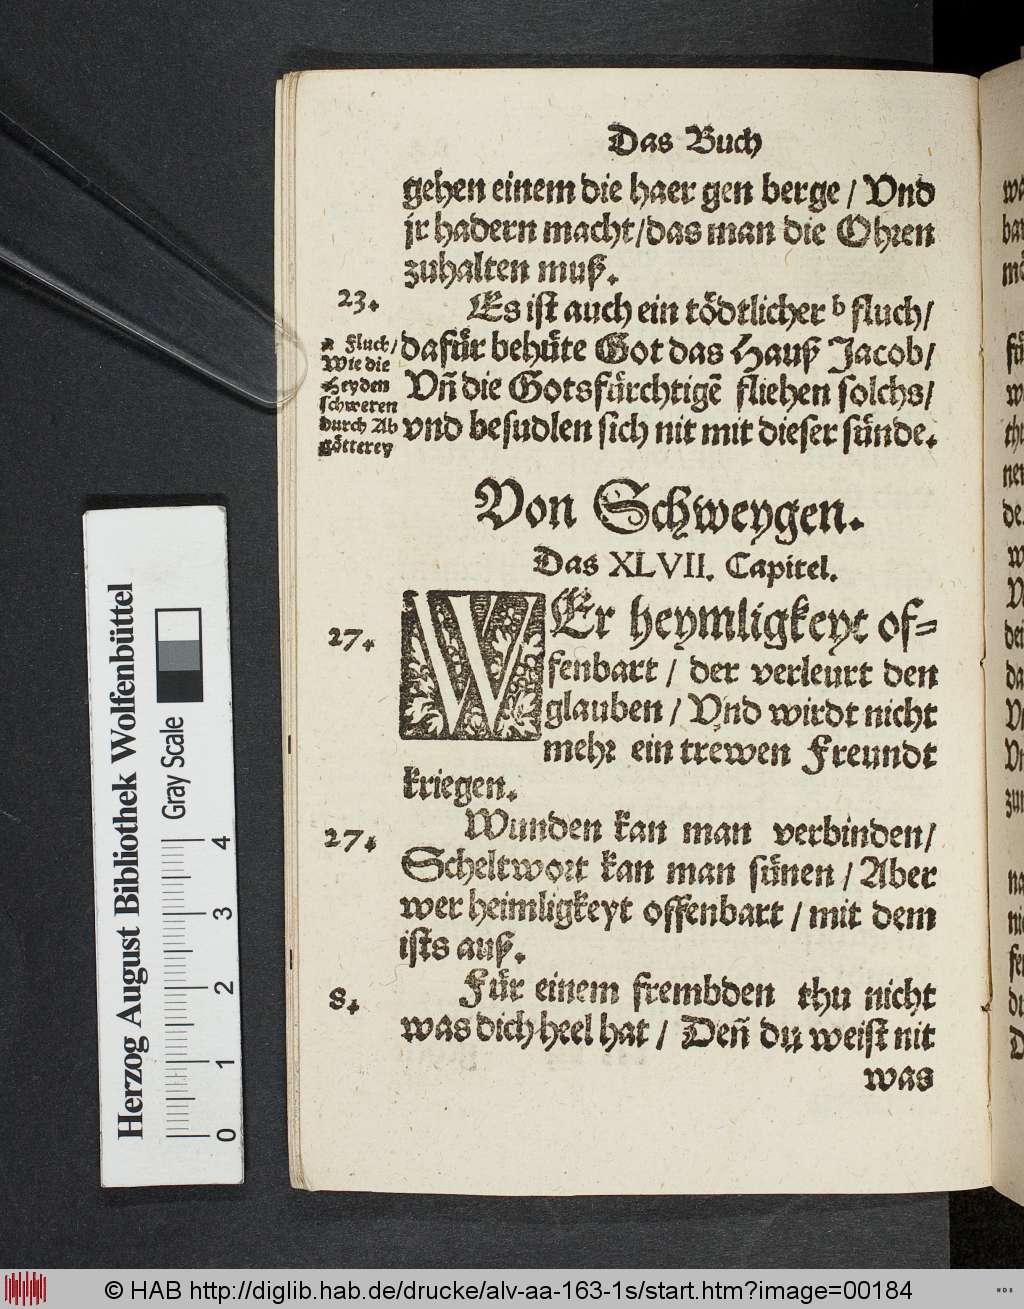 Das Buch
gehen einem die haer gen berge / Vnd
jr hadern macht/das man die Ohren
zuhalten muß.
23.
Es ist auch ein tödtlicher b fluch/
dafür behüte Got das Hauß Jacob/
Vñ die Gotsfürchtigẽ fliehen solchs/
vnd besudlen sich nit mit dieser sünde.
a Fluch/
Wie die
Heyden
schweren
durch Ab
götterey
Von Schweygen.
Das XLVII. Capitel.
27.
WEr heymligkeyt of=
fenbart / der verleurt den
glauben / Vnd wirdt nicht
mehr ein trewen Freundt
kriegen.
27.
Wunden kan man verbinden/
Scheltwort kan man sünen / Aber
wer heimligkeyt offenbart / mit dem
ists auß.
8.
Für einem frembden thu nicht
was dich heel hat / Deñ du weist nit
was
Herzog August Bibliothek Wolfenbüttel
Gray Scale
0 1 2 3 4
© HAB http://diglib.hab.de/drucke/alv-aa-163-1s/start.htm?image=00184